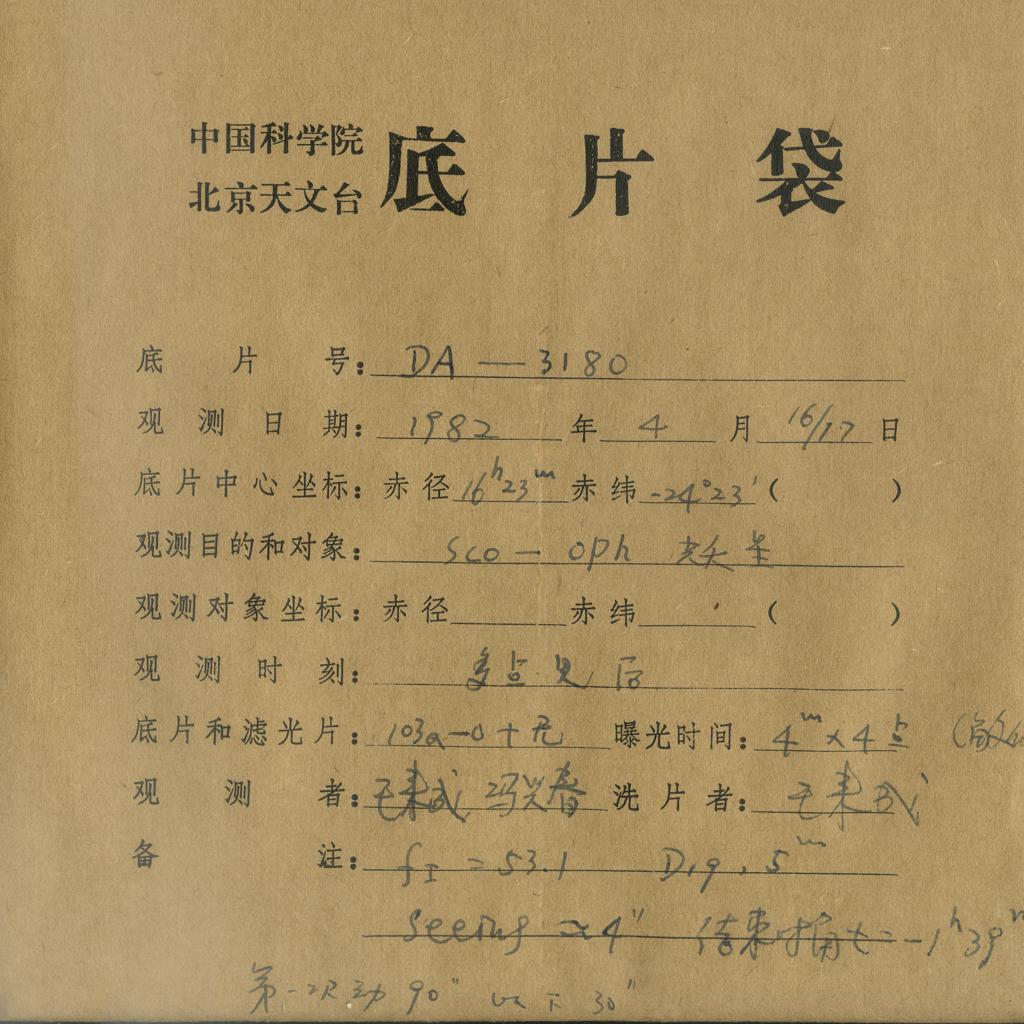 中国科学院
北京天文台 底片袋
底片号: DA — 3180
观测日期: 1982 年 4 月 16/17 日
底片中心坐标: 赤径 16h23m 赤纬 -24°23′ ( )
观测目的和对象: Sco — Oph
观测对象坐标: 赤径 赤纬 ( )
观测时刻: 多点见后
底片和滤光片: 103a-O + 无 曝光时间: 4m × 4点
观测者: 王来成 冯兴春 洗片者: 王来成
备注: fI = 53.1 D.19. 5m
Seeing ≈ 4″ 结束时角 t = -1h39m
第一次动 90″ 以下 30″